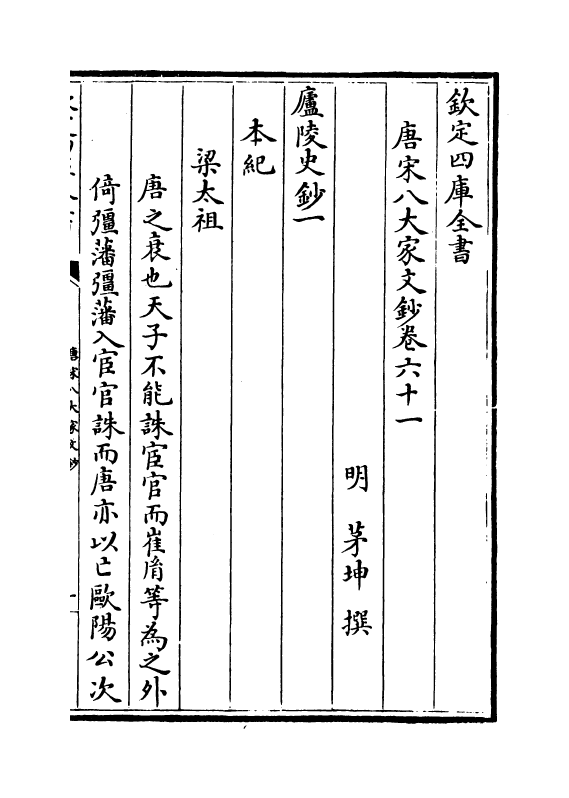 欽定四庫全書
唐宋八大家文鈔卷六十一
明 茅坤 撰
廬陵史鈔一
本紀
梁太祖
唐之衰也天子不能誅宦官而崔胤等為之外
倚彊藩彊藩入宦官誅而唐亦以亡歐陽公次
唐宋八大家文鈔
一